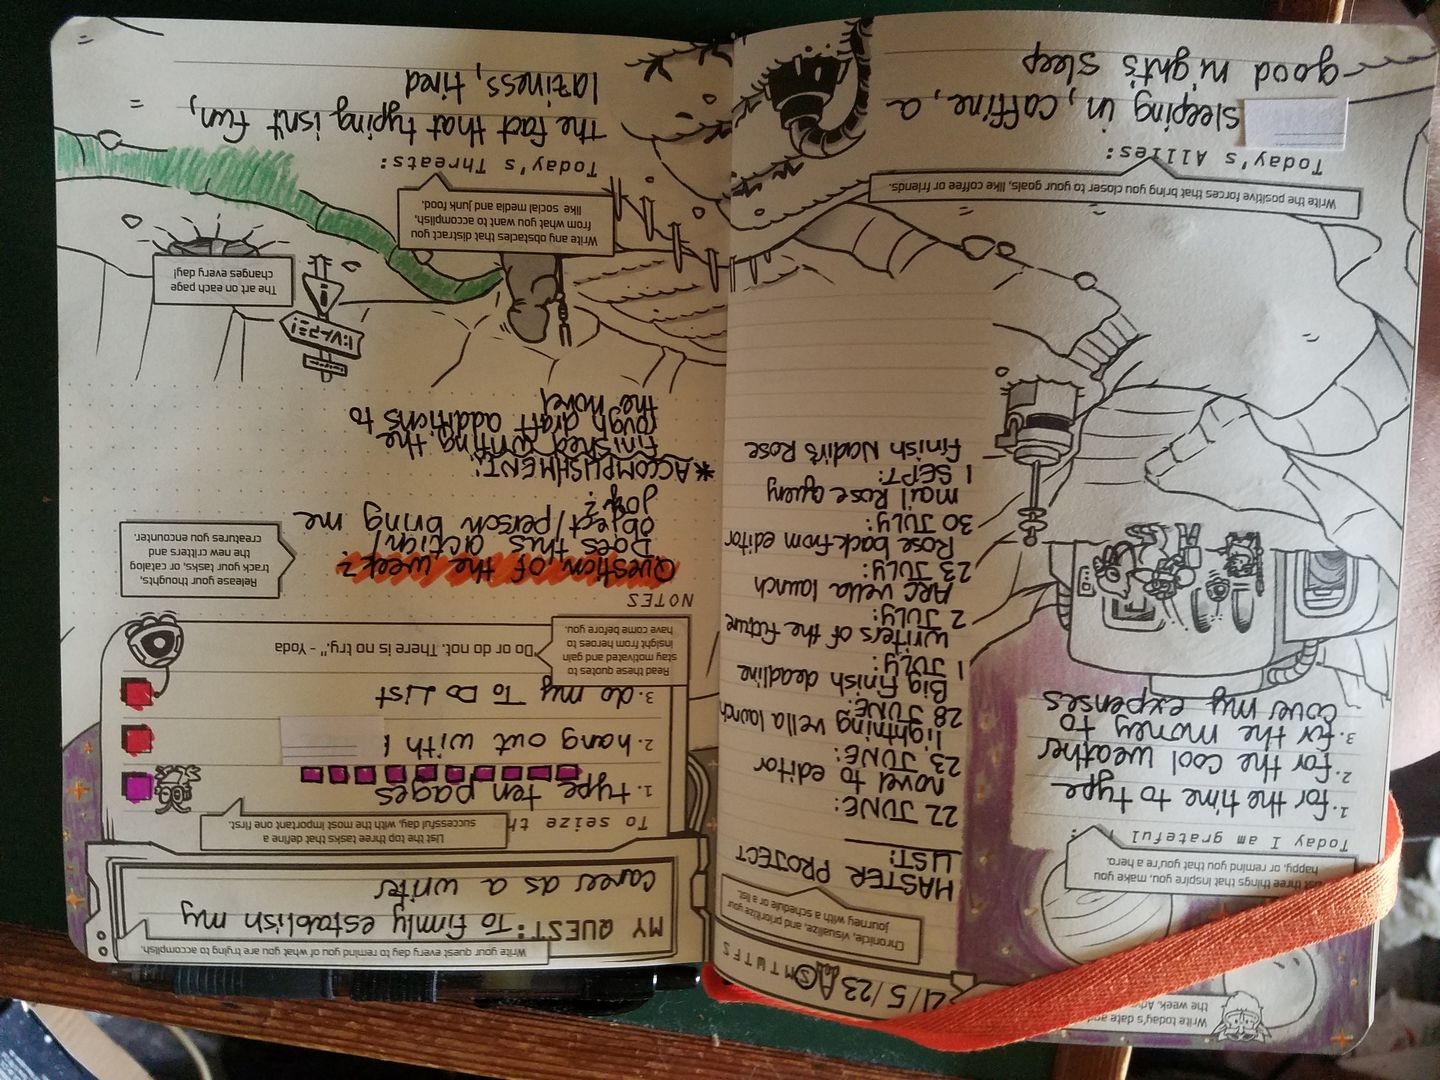 Write today's date and
the week. Adv
21/5/23 S M T W T F S
List three things that inspire you, make you
happy, or remind you that you're a hero.
Today I am grateful
1. for the time to type
2. for the cool weather
3. for the money to
cover my expenses
Chronicle, visualize, and prioritize your
journey with a schedule or a list.
MASTER PROJECT
LIST:
22 JUNE:
novel to editor
23 JUNE:
lightning vella launch
28 JUNE:
Big Finish deadline
1 JULY:
writers of the future
2 JULY:
ARC vella launch
23 JULY:
Rose back from editor
30 JULY:
mail Rose query
1 SEPT:
finish Nadir's Rose
Write the positive forces that bring you closer to your goals, like coffee or friends.
Today's Allies:
sleeping in, caffine, a
good night's sleep
Write your quest every day to remind you of what you are trying to accomplish.
MY QUEST: To firmly establish my
career as a writer
List the top three tasks that define a
successful day, with the most important one first.
To seize th
1. type ten pages
2. hang out with
3. do my To Do List
Read these quotes to
stay motivated and gain
insight from heroes to
have come before you.
"Do or do not. There is no try." - Yoda
NOTES
Release your thoughts,
track your tasks, or catalog
the new critters and
creatures you encounter.
Question of the week?
Does this action/
object/person bring me
joy?
*ACCOMPLISHMENT:
finished writing the
rough draft additions to
the novel
The art on each page
changes every day!
Write any obstacles that distract you
from what you want to accomplish,
like social media and junk food.
Today's Threats:
the fact that typing isn't fun,
laziness, tired